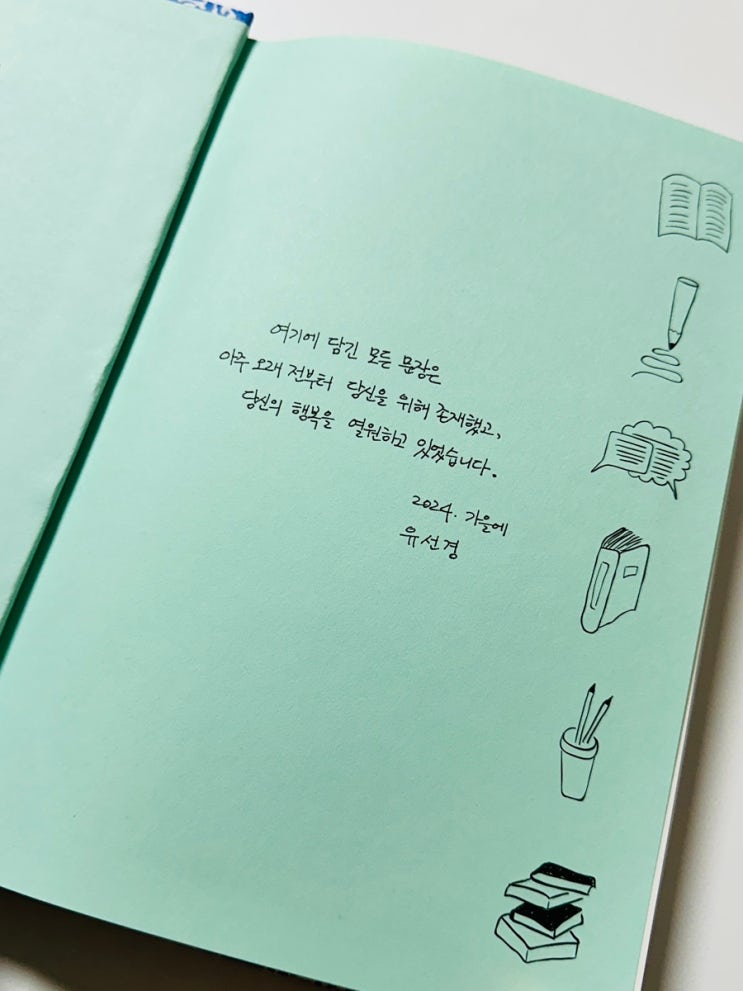 여기에 담긴 모든 문장은
아주 오래 전부터 당신을 위해 존재했고,
당신의 행복을 열원하고 있었습니다.
2024. 가을에
유선경